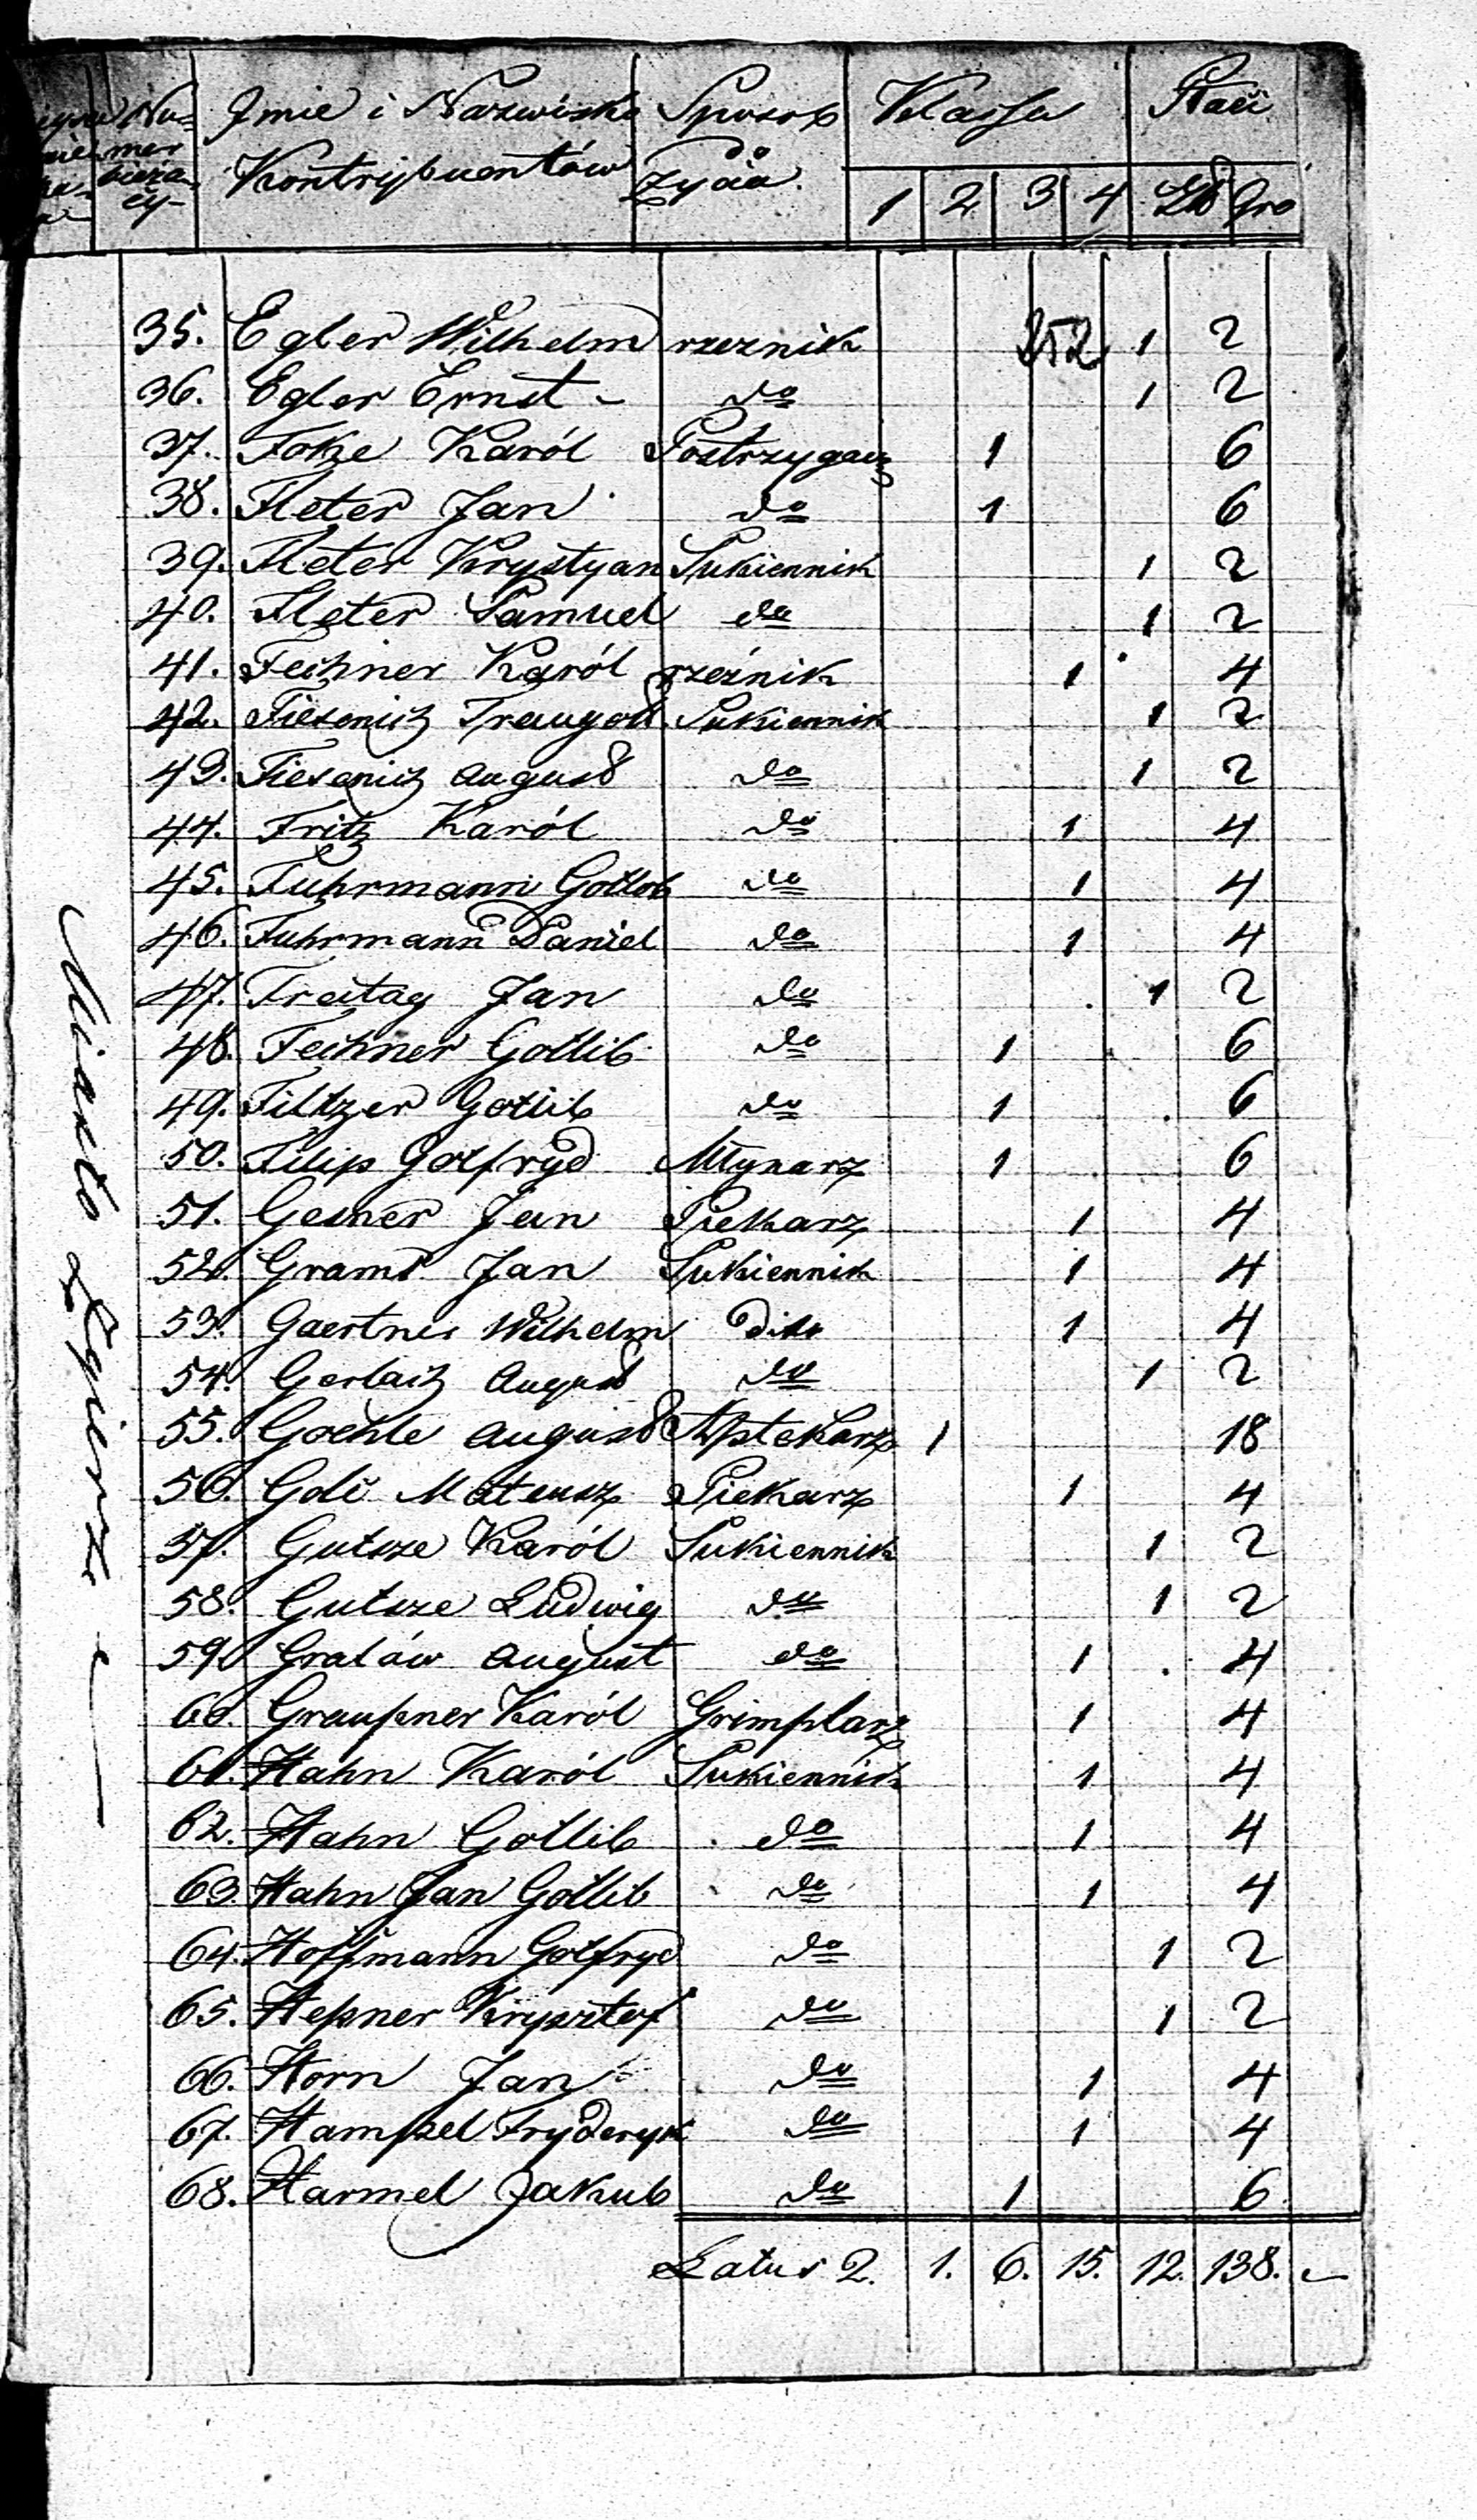 Numer bieżący Imie i Nazwisko Kontrybuentów Sposob do życia. Klassa 1 2 3 4 Płaci Zł Gro
252
35. Egler Wilhelm rzeznik 1 2
36. Egler Ernst - do 1 2
37. Foke Karól Postrzygacz 1 6
38. Fleter Jan do 1 6
39. Fleter Krystyan Sukiennik 1 2
40. Fleter Samuel do 1 2
41. Fechner Karól rzeźnik 1 4
42. Fiesenich Traugott Sukiennik 1 2
43. Fiesenich August do 1 2
44. Fritz Karól do 1 4
45. Fuhrmann Gottlob do 1 4
46. Fuhrmann Daniel do 1 4
47. Freitag Jan do 1 2
48. Fechner Gottlib do 1 6
49. Filtzer Gottlib do 1 6
50. Filip Gotfryd Młynarz 1 6
51. Gesner Jan Piekarz 1 4
52. Grams Jan Sukiennik 1 4
53. Gaertner Wilhelm dito 1 4
54. Gerlach August do 1 2
55. Goehle August Aptekarz 1 18
56. Goli Mateusz Piekarz 1 4
57. Gutsze Karól Sukiennik 1 2
58. Gutsze Ludwig do 1 2
59. Gralów August do 1 4
60. Graupner Karól Grimplarz 1 4
61. Hahn Karól Sukiennik 1 4
62. Hahn Gottlib do 1 4
63. Hahn Jan Gottlib do 1 4
64. Hoffmann Gotfryd do 1 2
65. Hepner Krysztof do 1 2
66. Horn Jan do 1 4
67. Hampel Fryderyk do 1 4
68. Harmel Jakub do 1 6
Latus 2. 1. 6. 15. 12. 138. -
Miasto Zgierz